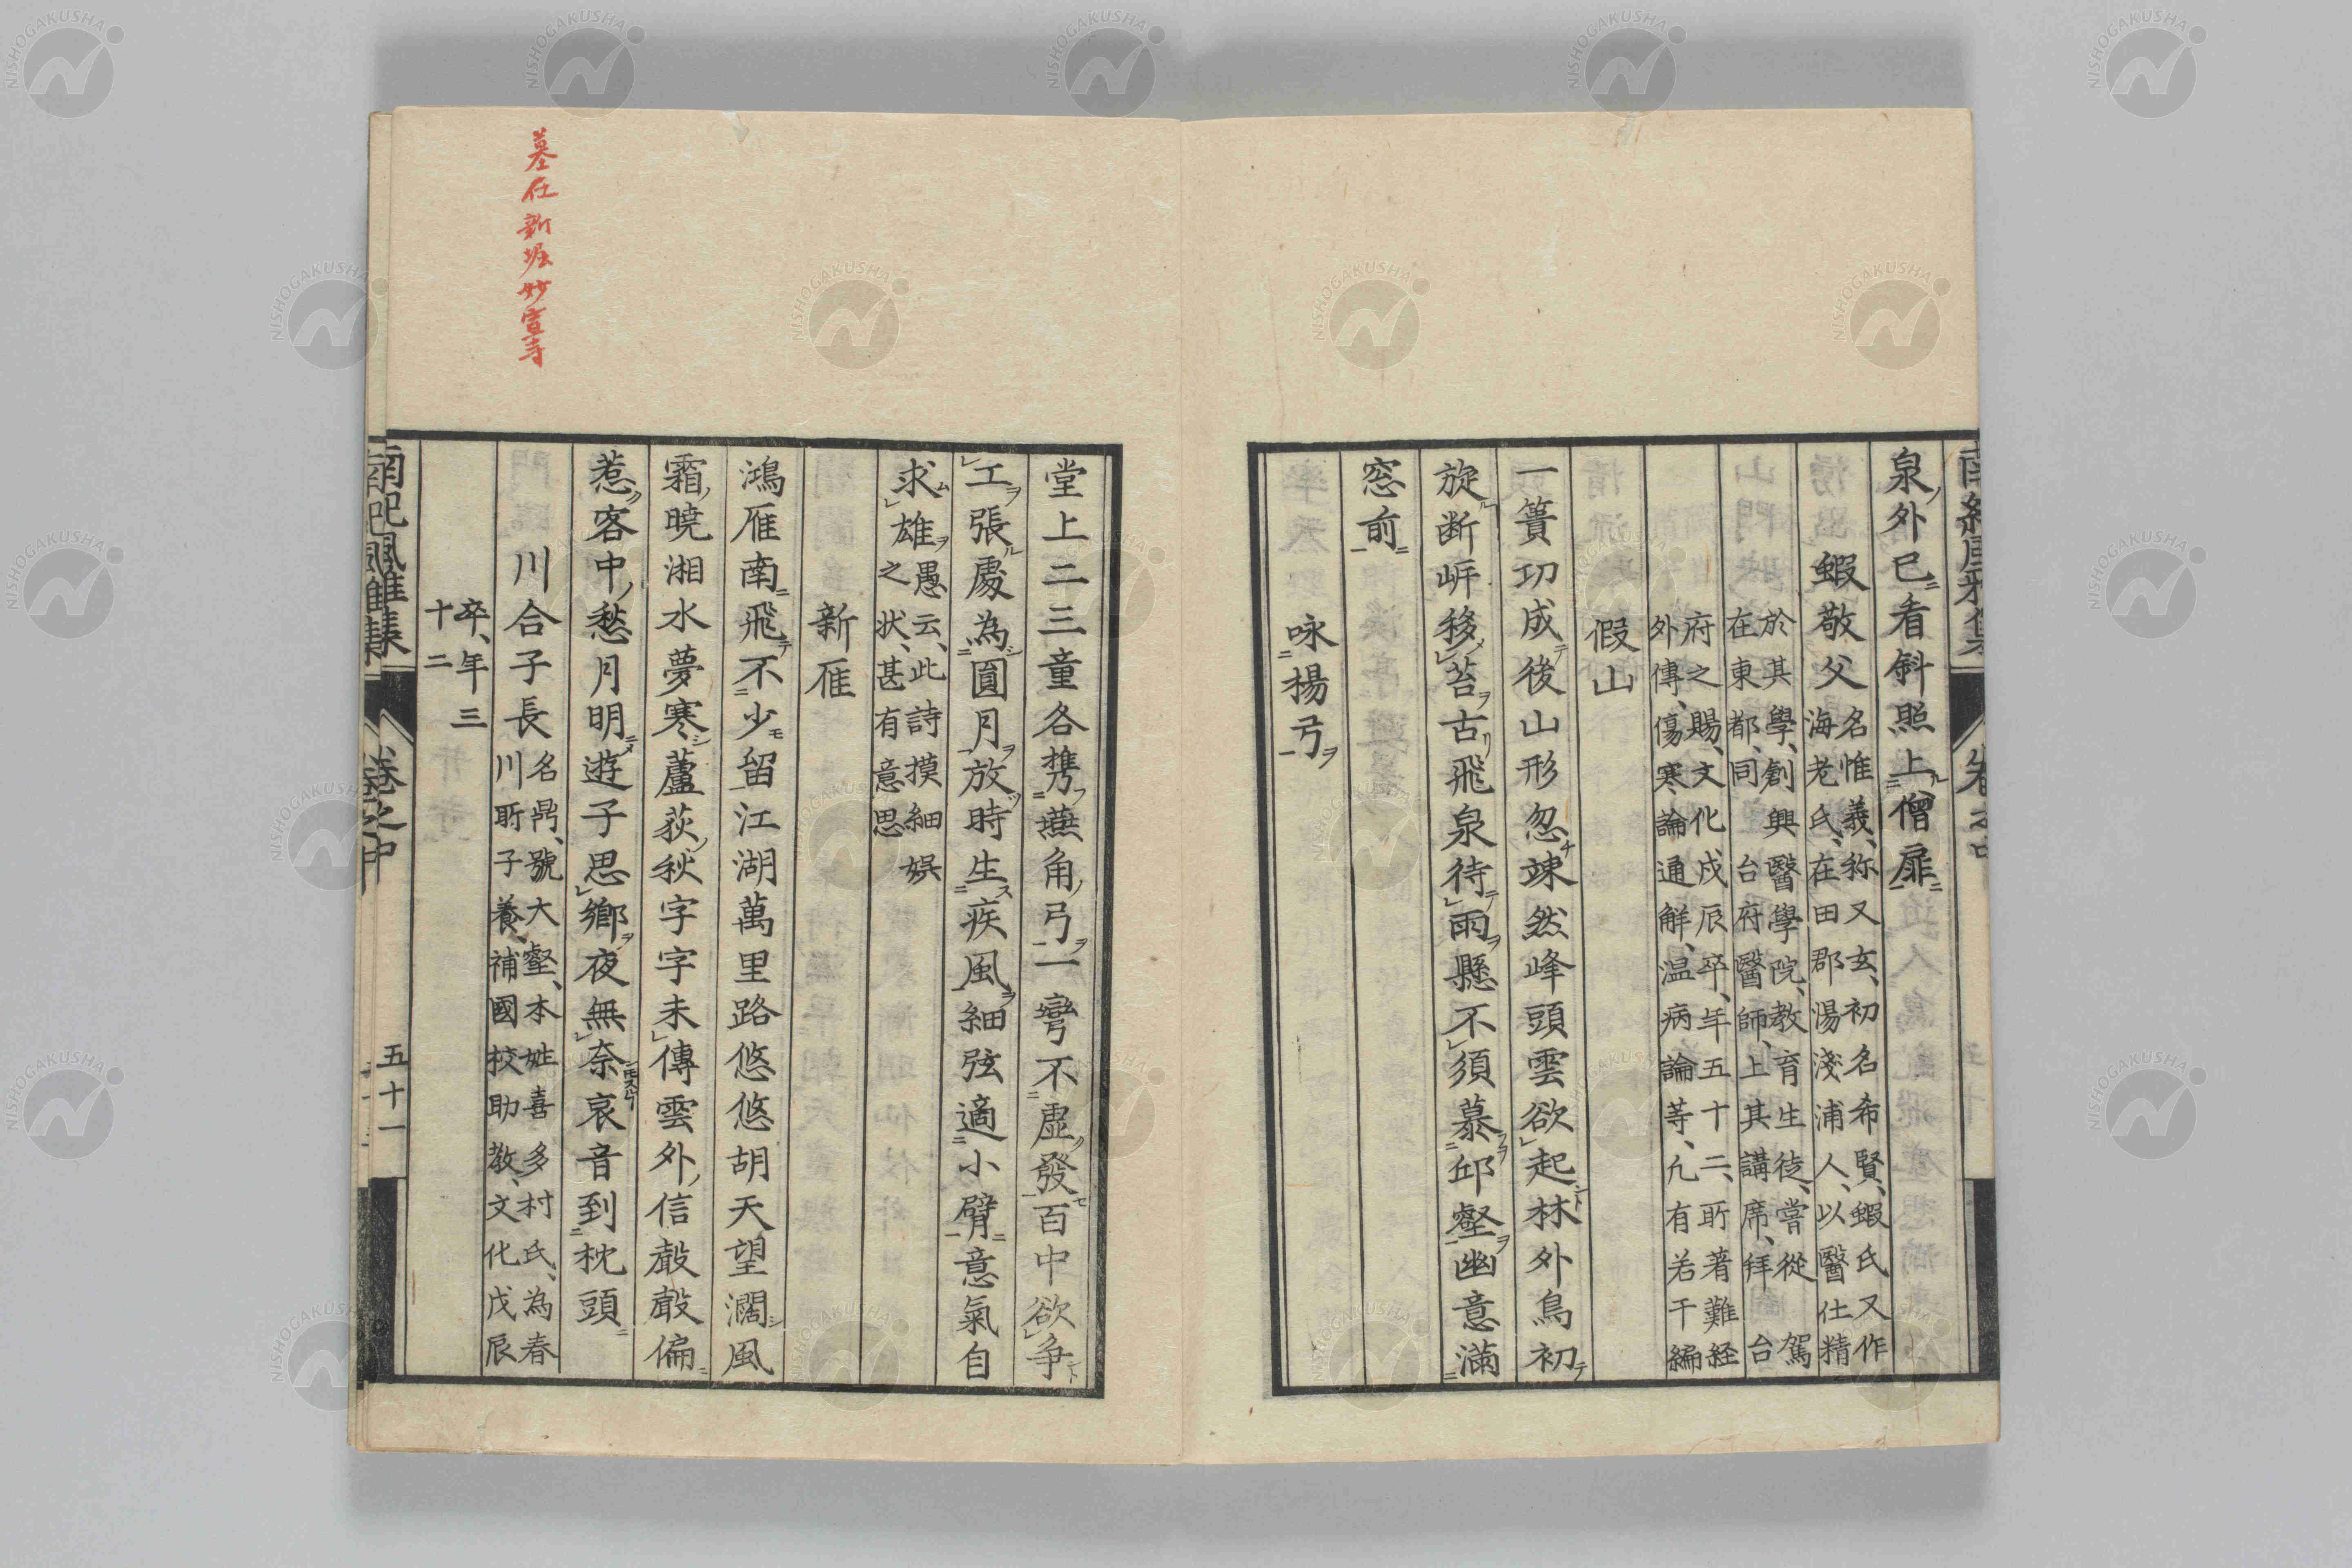 泉外已看斜照上僧扉
蝦敬父
名惟義、称又玄、初名希賢、蝦氏又作
海老氏、在田郡湯淺浦人、以醫仕精
於其學、創興醫學院、教育生徒、嘗從駕
在東都、同台府醫師、上其講席、拜台
府之賜、文化戊辰卒、年五十二、所著難経
外傳、傷寒論通解、温病論等、凢有若干編
假山
一簣功成後山形忽竦然峰頭雲欲起林外鳥初
旋断岍移苔古飛泉待雨懸不須慕邱壑幽意滿
窓前
咏揚弓
堂上二三童各携燕角弓一彎不虛發百中欲争
工張處為圓月放時生疾風細弦適小臂意氣自
求雄
愚云、此詩摸細娯
之状、甚有意思
新雁
鴻雁南飛不少留江湖萬里路悠悠胡天望濶風
霜曉湘水夢寒蘆荻秋字字未傳雲外信聲聲偏
惹客中愁月明遊子思鄉夜無奈哀音到枕頭
川合子長
名鼎、號大壑、本姓喜多村氏、為春
川所子養、補國校助教、文化戊辰
卒、年三
十二
南紀風雅集
卷之中
五十一
墓在新堀妙宣寺